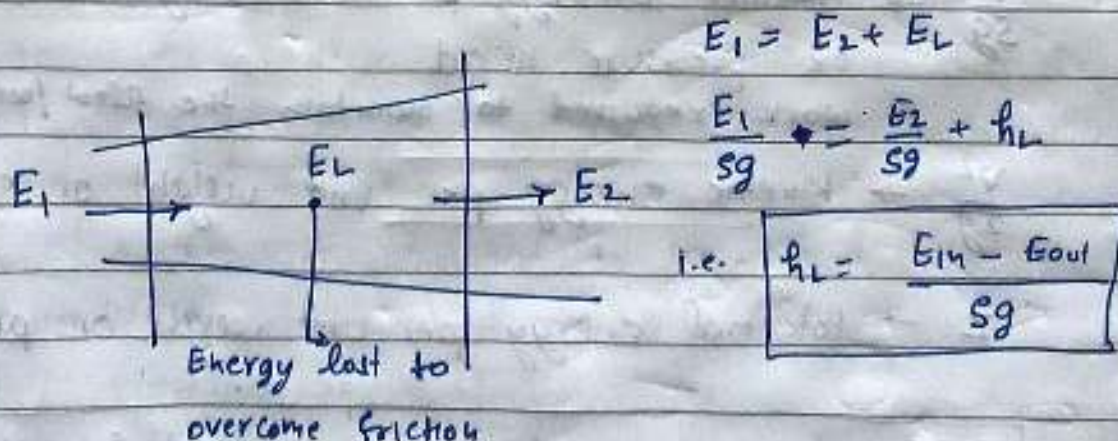 E₁ = E₂ + E_L
E₁/ρg = E₂/ρg + h_L
E₁ E_L E₂
i.e. h_L = Ein - Eout / ρg
Energy lost to
overcome friction